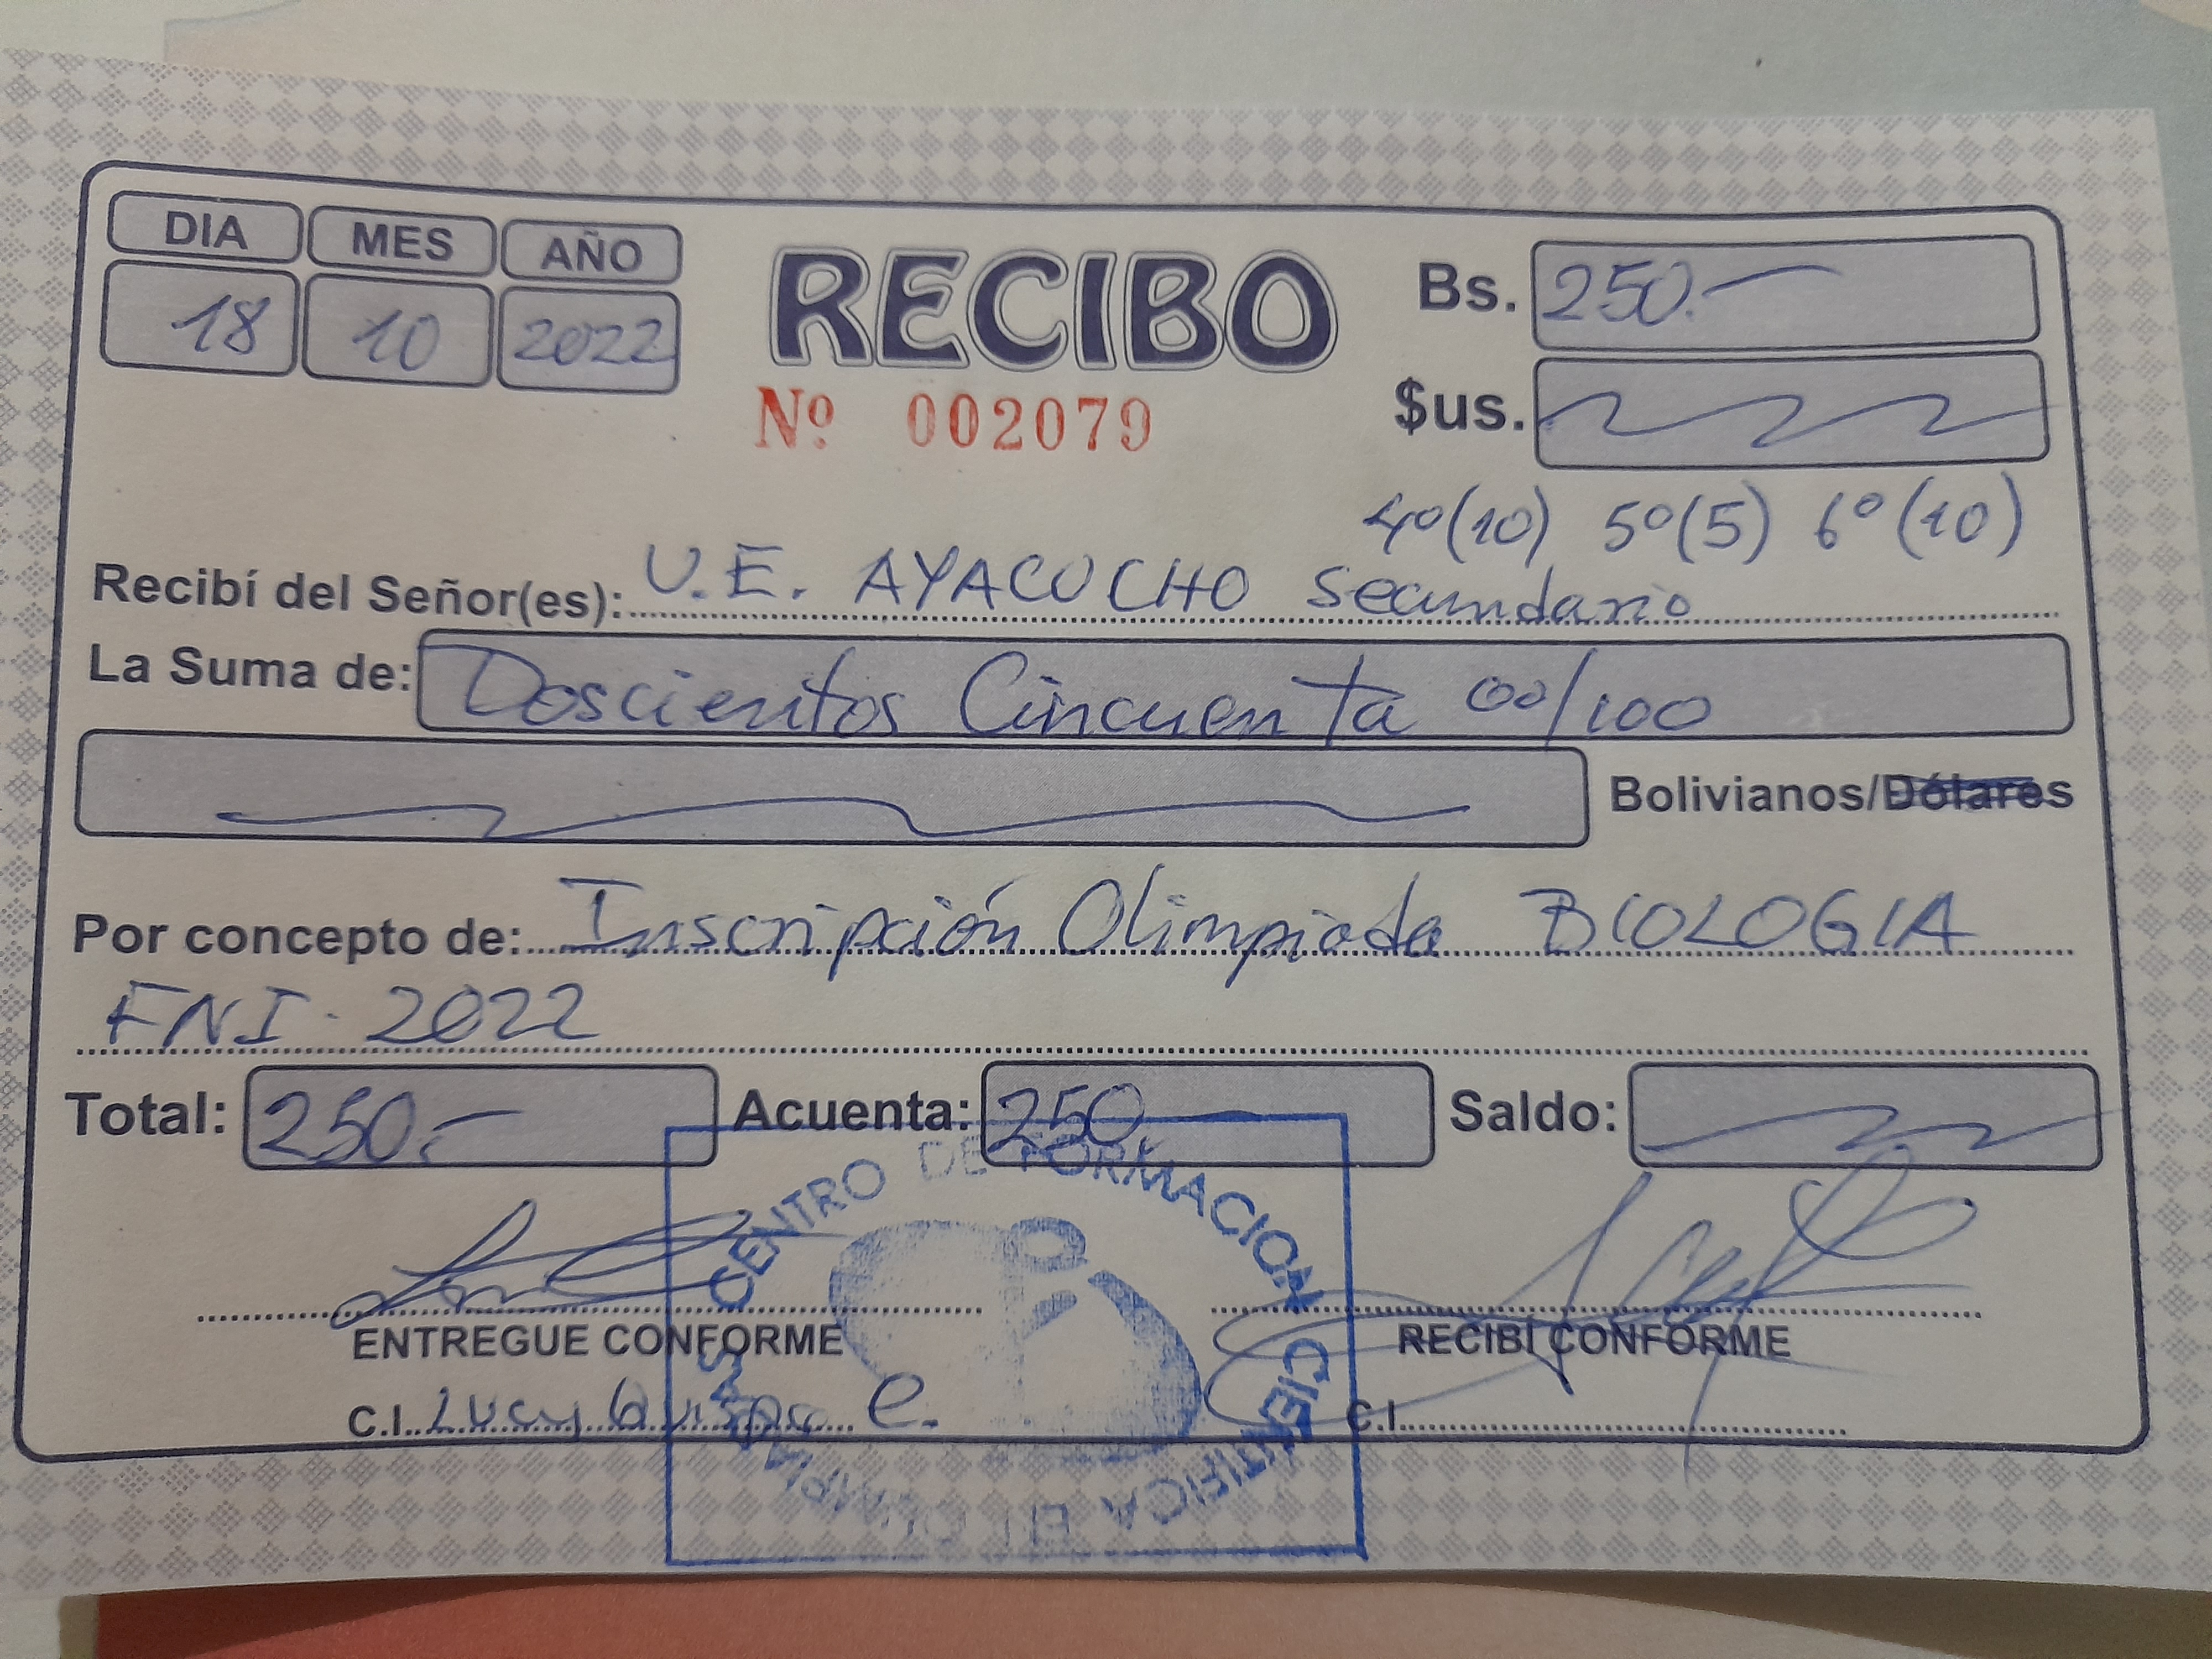 DIA MES AÑO
18 10 2022
RECIBO
Nº 002079
Bs. 250.-
$us.
4º(10) 5º(5) 6º(10)
Recibí del Señor(es): U.E. AYACUCHO secundario
La Suma de: Doscientos Cincuenta 00/100
Bolivianos/Dólares
Por concepto de: Inscripción Olimpiada BIOLOGIA
FNI. 2022
Total: 250.- Acuenta: 250 Saldo:
ENTREGUE CONFORME
RECIBI CONFORME
C.I. Lucy
C.I.
CENTRO DE FORMACIÓN CIENTIFICA